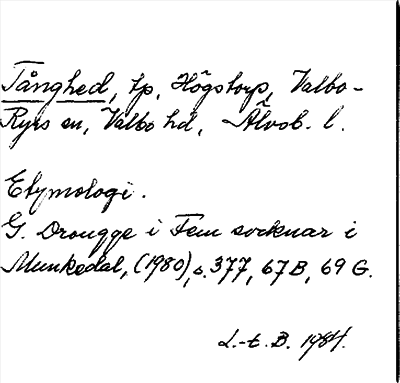 Tånghed, tp, Högstorp, Valbo-
Ryrs sn, Valbo hd, Älvsb. l.
Etymologi.
G. Drougge i Fem socknar i
Munkedal, (1980), s. 377, 67B, 69 G.
L.-t. B. 1984.